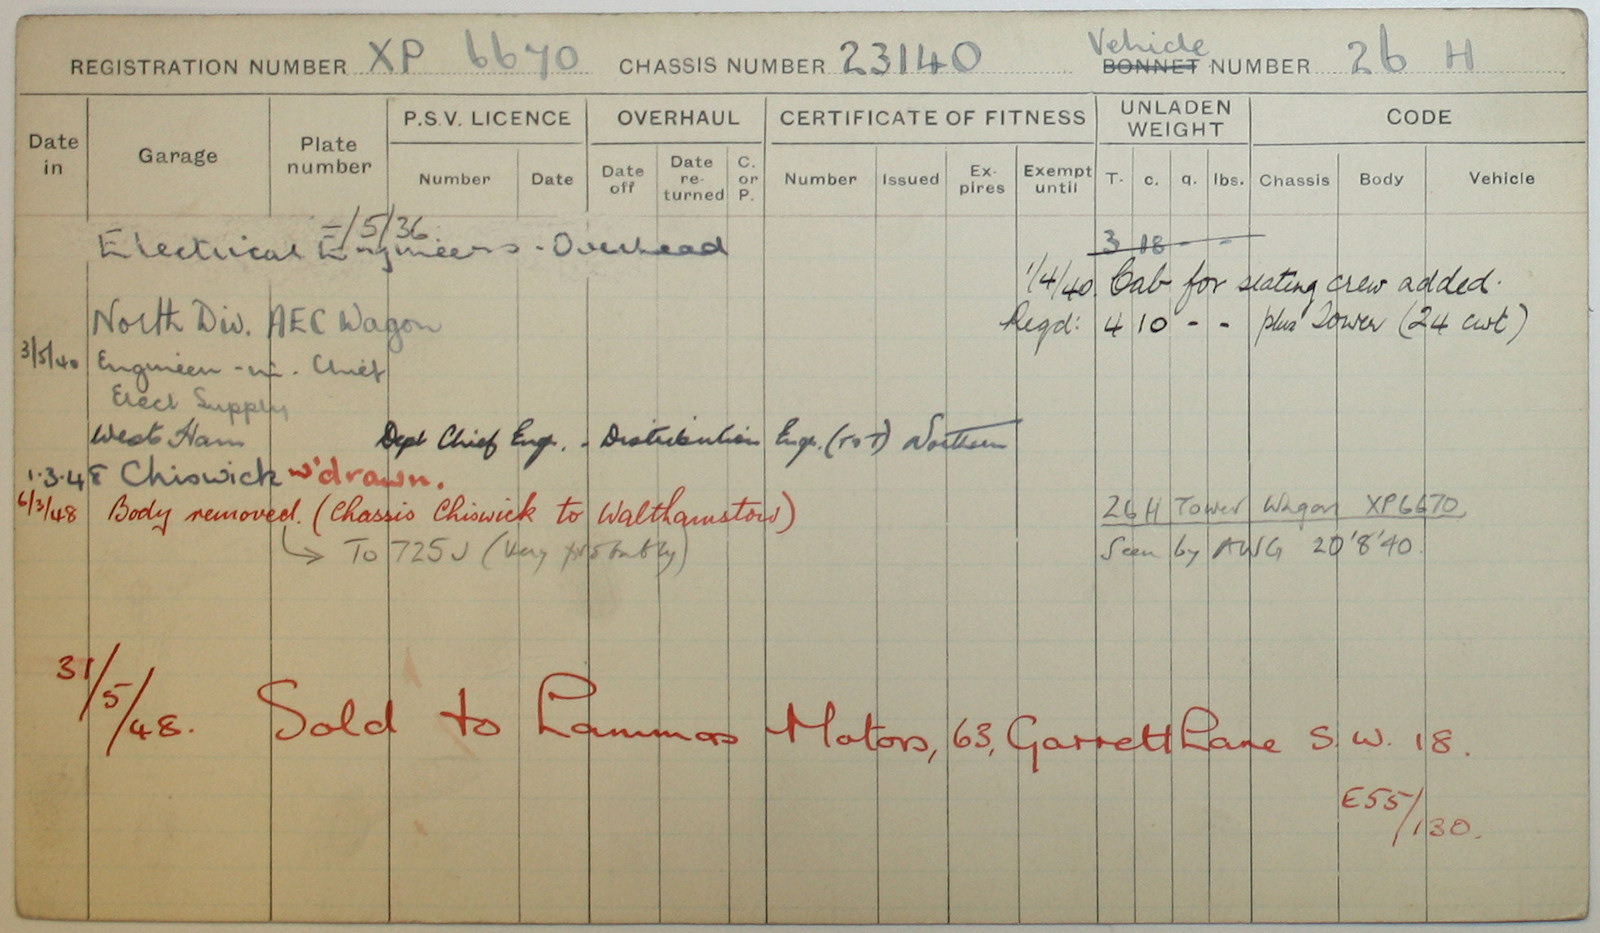 REGISTRATION NUMBER XP 6670 CHASSIS NUMBER 23140 Vehicle BONNET NUMBER 26 H
Date in Garage Plate number P.S.V. LICENCE OVERHAUL CERTIFICATE OF FITNESS UNLADEN WEIGHT CODE
Number Date Date off Date re-turned C. or P. Number Issued Ex-pires Exempt until T. c. q. lbs. Chassis Body Vehicle
-/5/36
Electrical Engineers - Overhead 3 18 - -
1/4/40. Cab for seating crew added.
North Div. AEC Wagon Regd: 4 10 - - plus Tower (24 cwt)
3/5/40 Engineer-in-Chief
Elect Supply
West Ham Dept Chief Engr. - Distribution Engr. (T o T) Northern
1.3.48 Chiswick w'drawn.
6/3/48 Body removed. (Chassis Chiswick to Walthamstow) 26H Tower Wagon XP6670
To 725J (Very probably) Seen by AWG 20'8'40.
31/5/48. Sold to Lammas Motors, 63, Garrett Lane S.W. 18.
E55/130.